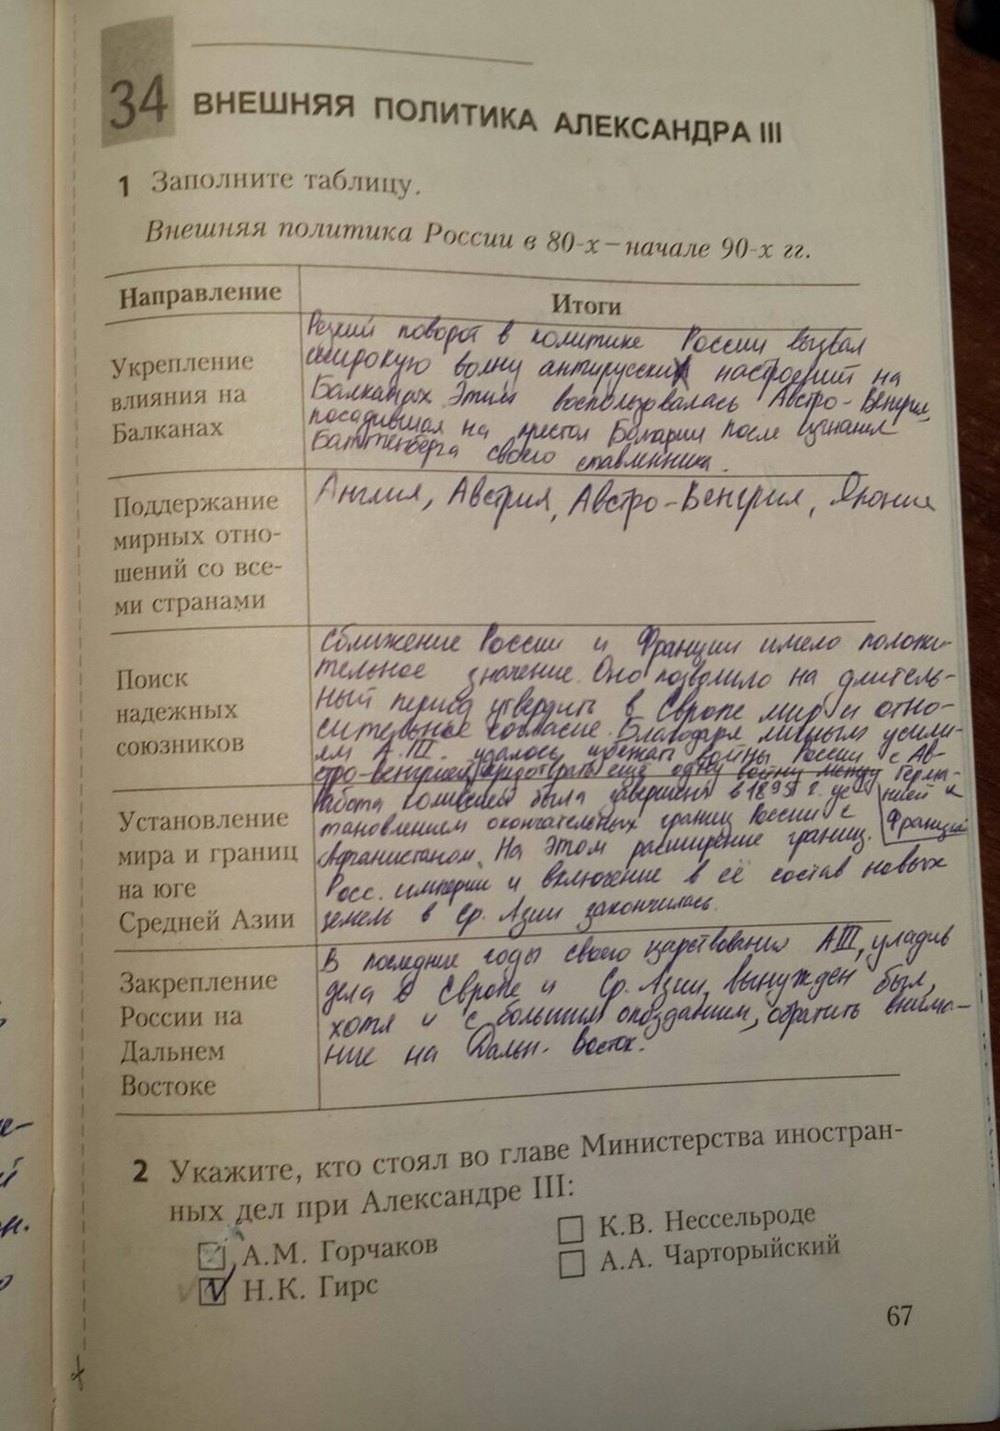 34
ВНЕШНЯЯ ПОЛИТИКА АЛЕКСАНДРА III
1 Заполните таблицу.
Внешняя политика России в 80-х – начале 90-х гг.
Направление
Итоги
Укрепление
влияния на
Балканах
Резкий поворот в политике России вызвал
широкую волну антирусских настроений на
Балканах. Этим воспользовалась Австро-Венгрия,
посадившая на престол Болгарии после изгнания
Баттенберга своего ставленника.
Поддержание
мирных отно-
шений со все-
ми странами
Англия, Австрия, Австро-Венгрия, Япония
Поиск
надежных
союзников
Сближение России и Франции имело положи-
тельное значение. Оно позволило на длитель-
ный период утвердить в Европе мир и отно-
сительное согласие. Благодаря личным усили-
ям А.III. удалось избежать войны России с Ав-
стро-Венгрией, предотвратить ещё одну войну между Герма-
нией и
Францией
Установление
мира и границ
на юге
Средней Азии
Работа комиссии была завершена в 1895 г. ус-
тановлением окончательных границ России с
Афганистаном. На этом расширение границ.
Росс. империи и включение в её состав новых
земель в Ср. Азии закончилась.
Закрепление
России на
Дальнем
Востоке
В последние годы своего царствования АIII, уладив
дела в Европе и Ср. Азии, вынужден был,
хотя и с большим опозданием, обратить внима-
ние на Дальн. Восток.
2 Укажите, кто стоял во главе Министерства иностран-
ных дел при Александре III:
А.М. Горчаков
Н.К. Гирс
К.В. Нессельроде
А.А. Чарторыйский
67